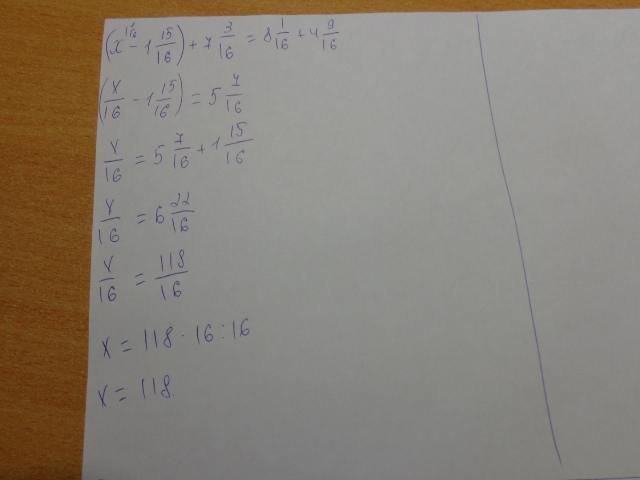 (x - 1 15/16) + 7 3/16 = 8 1/16 + 4 9/16
(x/16 - 1 15/16) = 5 7/16
x/16 = 5 7/16 + 1 15/16
x/16 = 6 22/16
x/16 = 118/16
x = 118 · 16 : 16
x = 118.